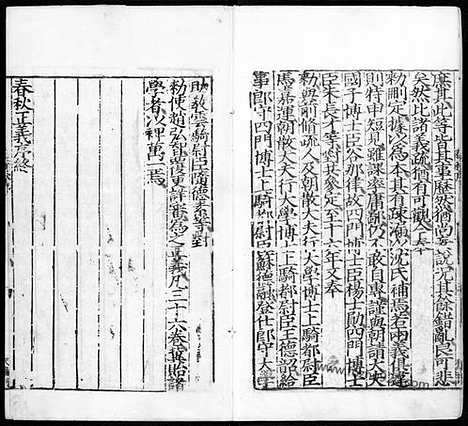 此等皆其事歷然猶尚妄說況其餘錯亂良可悲
矣然比諸義疏猶有可觀今奉
勑刪定據以爲本其有疎漏以沈氏補焉若兩義俱違
則特申短見雖課率庸鄙仍不敢自專謹與朝請大夫
國子博士臣谷那律故四門博士臣楊士勛四門博士
臣朱長才等對共參定至十六年又奉
勑與前脩疏人及朝散大夫行大學博士上騎都尉臣
馬嘉運朝散大夫行大學博士上騎都尉臣王德韶給
事郎守四門博士上騎都尉臣蘇德融登仕郎守大學
助教雲騎尉臣隨德素等對
勑使趙弘智覆更詳審爲之正義凡三十六卷冀貽諸
學者以裨萬一焉
春秋正義序終